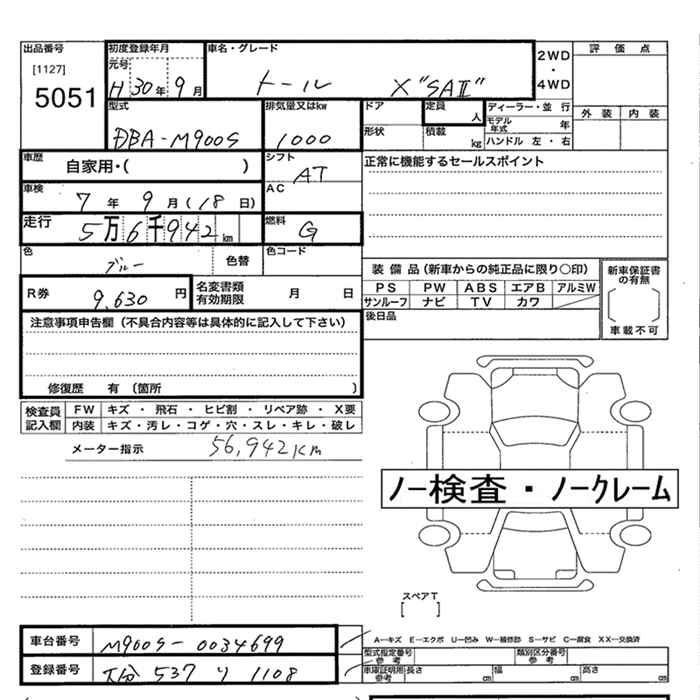 出品番号 初度登録年月 車名・グレード 2WD 評価点
[1127] 元号 H 30年 9月 トール X "SAⅡ" ・
5051 4WD
型式 排気量又はkw ドア 定員 人 ディーラー・並行 外装 内装
DBA-M900S 1000 形状 積載 kg モデル年式 年
ハンドル 左・右
車歴 自家用・( ) シフト AT 正常に機能するセールスポイント
車検 7年 9月(18日) AC
走行 5万6千942km 燃料 G
色 ブルー 色替 色コード
装備品(新車からの純正品に限り○印) 新車保証書の有無
R券 9,630円 名変書類有効期限 月 日 PS PW ABS エアB アルミW
サンルーフ ナビ TV カワ
注意事項申告欄(不具合内容等は具体的に記入して下さい) 後日品 車載不可
修復歴 有 (箇所 )
検査員記入欄 FW キズ・飛石・ヒビ割・リペア跡・X要
内装 キズ・汚レ・コゲ・穴・スレ・キレ・破レ
メーター指示 56,942Km
ノー検査・ノークレーム
スペアT
[ ]
車台番号 M900S-0034699 A―キズ E―エクボ U―凹み W―補修跡 S―サビ C―腐食 XX―交換済
型式指定番号 参考 類別区分番号 参考
登録番号 大分 537 り 1108 車庫証明用参考 長さ cm 幅 cm 高さ cm